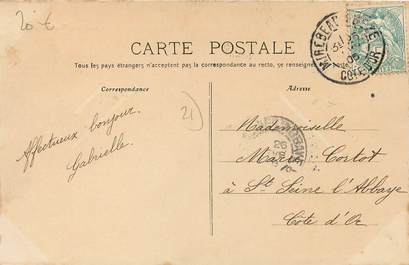 20 €
CARTE POSTALE
Tous les pays étrangers n'acceptent pas la correspondance au recto, se renseigner
Correspondance
Adresse
MIREBEAU-S-BÈZE
CÔTE-D'OR
21)
Affectueux bonjour.
Gabrielle.
Mademoiselle
Maria Cortot
à St Seine l'Abbaye
Côte d'Or